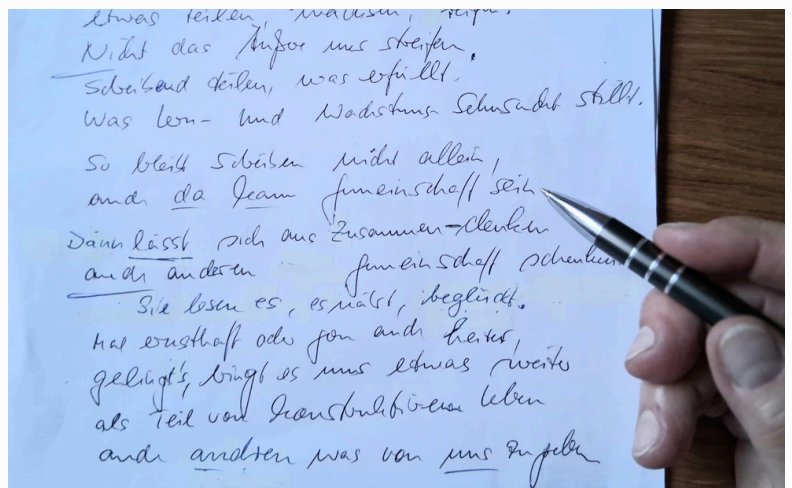 etwas teilen, wachsen, reifen.
Nicht das Äußre nur streifen,
Schreibend teilen, was erfüllt.
Was Lern- und Wachstums-Sehnsucht stillt.
So bleibt Schreiben nicht allein,
auch da kann Gemeinschaft sein
Dann lässt sich aus Zusammen-denken
auch anderen Gemeinschaft schenken
Sie lesen es, es nützt, beglückt.
Mal ernsthaft oder gern auch heiter,
gelingt's, bringt es uns etwas weiter
als Teil von konstruktivem Leben
auch andren was von uns zu geben